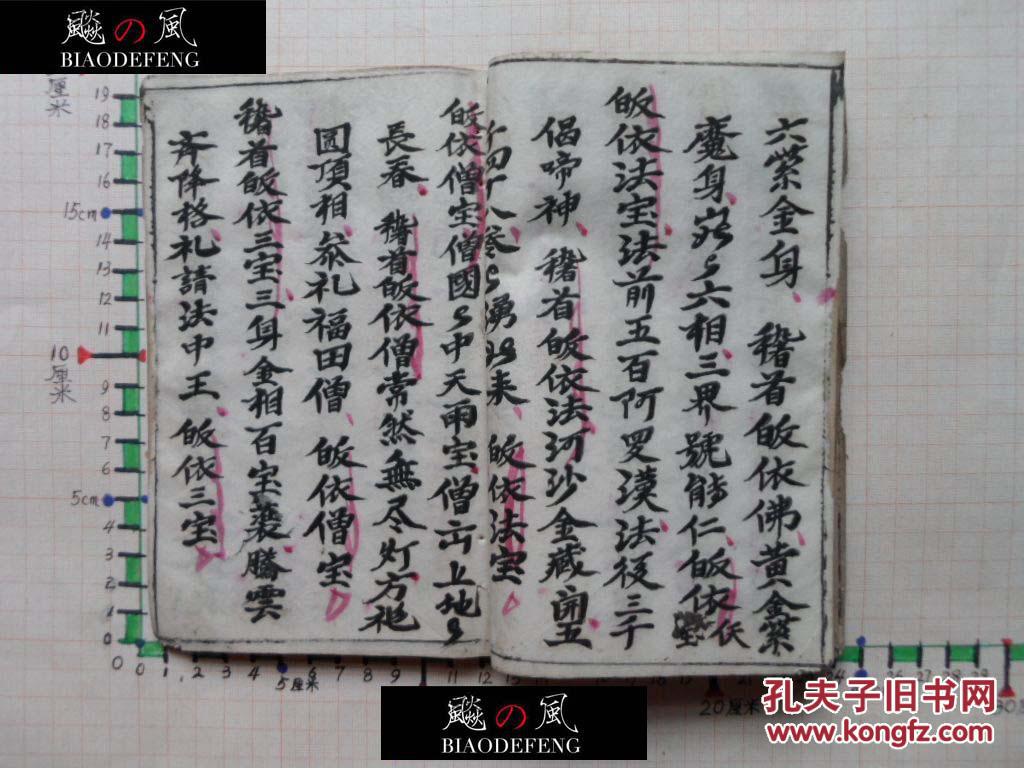 飈の風
BIAODEFENG
六紫金身、稽首皈依佛、黄金紫
魔身、巍々六相、三界號能仁、皈依
佛宝
皈依法宝、法前五百阿罗漢、法後三千
偈啼神、稽首皈依法、河沙金藏開、五
千四十八卷、々湧出来、皈依法宝
皈依僧宝、僧國々中天雨宝、僧亦上地々
長春、稽首皈依僧、常然無尽灯、方袍
圆頂相、叅礼福田僧、皈依僧宝
稽首皈依三宝、三身金相百宝蓑、騰雲
齐降格、礼請法中王、皈依三宝
厘米
19
18
17
16
15cm
14
13
12
11
10
厘米
9
8
7
6
5cm
4
3
2
1
0
0 1 2 3 4 5厘米 6 7 8 9 10 11 12 13
20厘米
飈の風
BIAODEFENG
孔夫子旧书网
www.kongfz.com